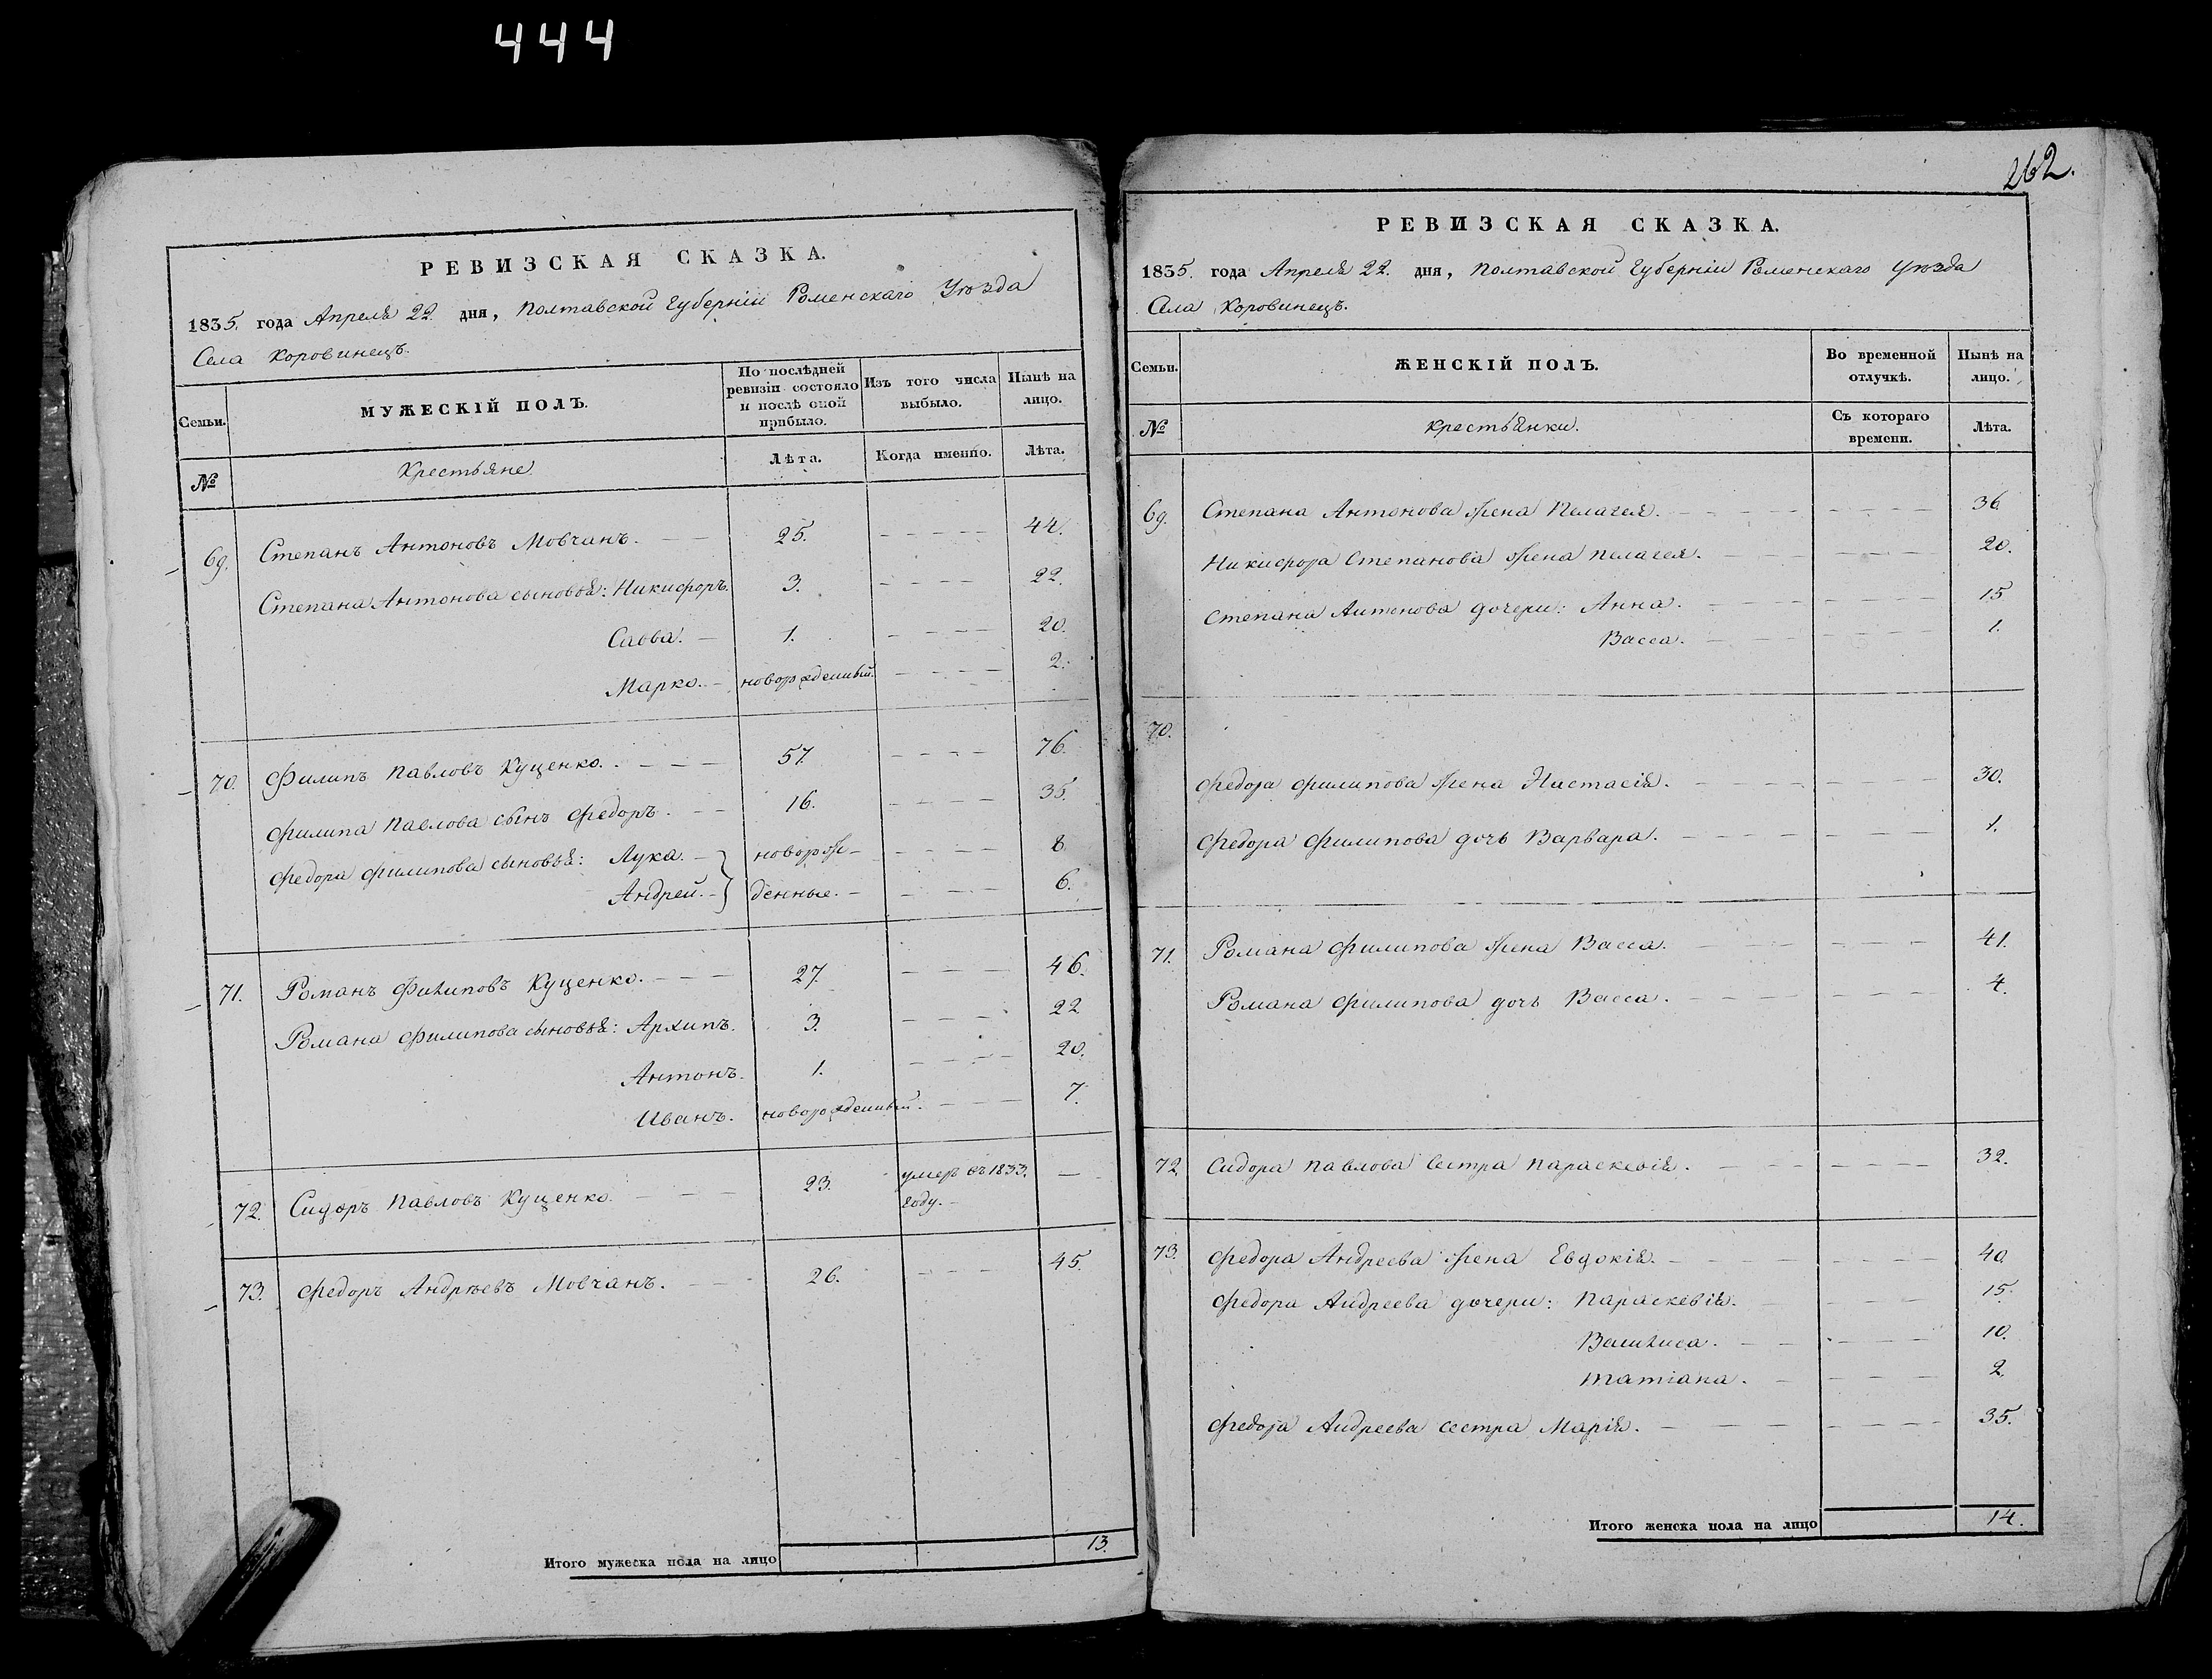 444
РЕВИЗСКАЯ СКАЗКА.
1835. года Апреля 22. дня, Полтавской Губерніи Роменскаго Уѣзда
Села Коровинецъ.
Семьи. МУЖЕСКІЙ ПОЛЪ. По послѣдней ревизіи состояло и послѣ оной прибыло. Изъ того числа выбыло. Нынѣ на лицо.
№ Крестьяне Лѣта. Когда именно. Лѣта.
69. Степанъ Антоновъ Мовчанъ. 25. 44.
Степана Антонова сыновья: Никифоръ. 3. 22.
Савва. 1. 20.
Марко. новорожденный. 2.
70. Филипъ Павловъ Куценко. 57. 76.
Филипа Павлова сынъ Федоръ. 16. 35.
Федора Филипова сыновья: Лука. новорож- 8.
Андрей. денные. 6.
71. Романъ Филиповъ Куценко. 27. 46.
Романа Филипова сыновья: Архипъ. 3. 22
Антонъ. 1. 20.
Иванъ. новорожденный. 7.
72. Сидоръ Павловъ Куценко. 23. умеръ въ 1833. —
году.
73. Федоръ Андрѣевъ Мовчанъ. 26. 45.
Итого мужеска пола на лицо 13.
262.
РЕВИЗСКАЯ СКАЗКА.
1835. года Апреля 22. дня, Полтавской Губерніи Роменскаго Уѣзда
Села Коровинецъ.
Семьи. ЖЕНСКІЙ ПОЛЪ. Во временной отлучкѣ. Нынѣ на лицо.
№ Крестьянки. Съ котораго времени. Лѣта.
69. Степана Антонова жена Пелагея. 36
Никифора Степанова жена Пелагея. 20.
Степана Антонова дочери: Анна. 15
Васса. 1.
70.
Федора Филипова жена Настасія. 30.
Федора Филипова дочь Варвара. 1.
71. Романа Филипова жена Васса. 41.
Романа Филипова дочь Васса. 4.
72 Сидора Павлова сестра Параскевія. 32.
73. Федора Андреева жена Евдокія. 40.
Федора Андреева дочери: Параскевія. 15.
Василиса. 10.
Татіана. 2.
Федора Андреева сестра Марія. 35.
Итого женска пола на лицо 14.